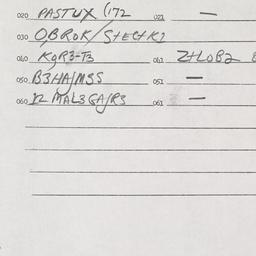 020 PASTUX (172 021 —
030 OBROK/StECtK2
040 KQR3-T3 041 ZHLOB2
050 B3HA/MSS 051 —
060 12 MAL3GA/R3 061 —